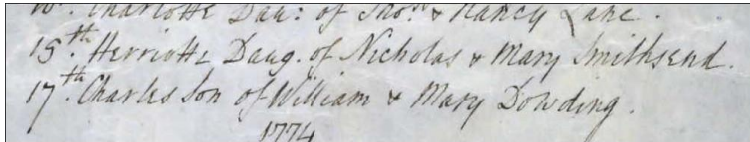 Charlotte Dau: of Tho.s & Nancy Lane.
15.th Herriotte Daug. of Nicholas & Mary Smithsend.
17.th Charles Son of William & Mary Dowding.
1774